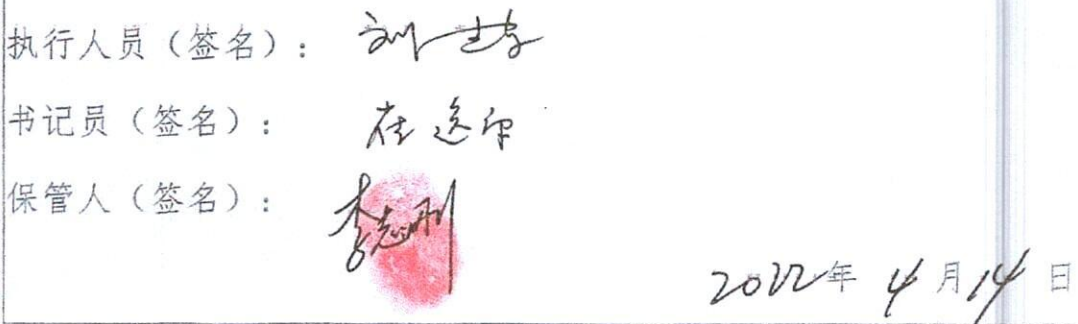 执行人员（签名）： 刘
书记员（签名）：
保管人（签名）： 李志刚
2022年 4月14日